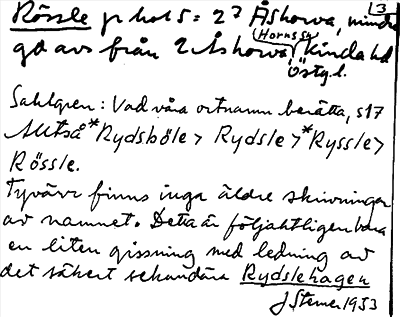 3
Rössle gr kol 5: 2? Åshorva, mindre
Horns sn
gd avs från 2 Åshorva, Kinda hd
Östgl.
Sahlgren: Vad våra ortnamn berätta, s 17
Alltså *Rydsböle > Rydsle > *Ryssle >
Rössle.
Tyvärr finns inga äldre skrivningar
av namnet. Detta är följaktligen bara
en liten gissning med ledning av
det säkert sekundära Rydslehagen
J Stemer 1953